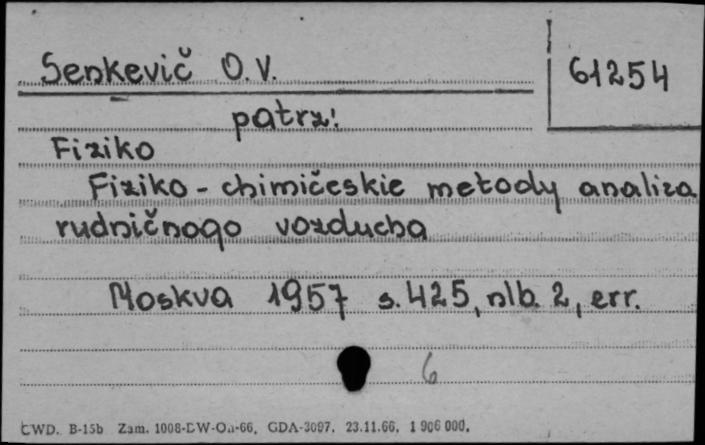 Senkevič O.V.
61254
patrz!
Fiziko
Fiziko-chimičeskie metody analiza
rudničnogo vozducha
Moskva 1957 s. 425, nlb. 2, err.
6
CWD. B-15b Zam. 1008-DW-Oa-66. GDA-3097. 23.11.66. 1 906 000.